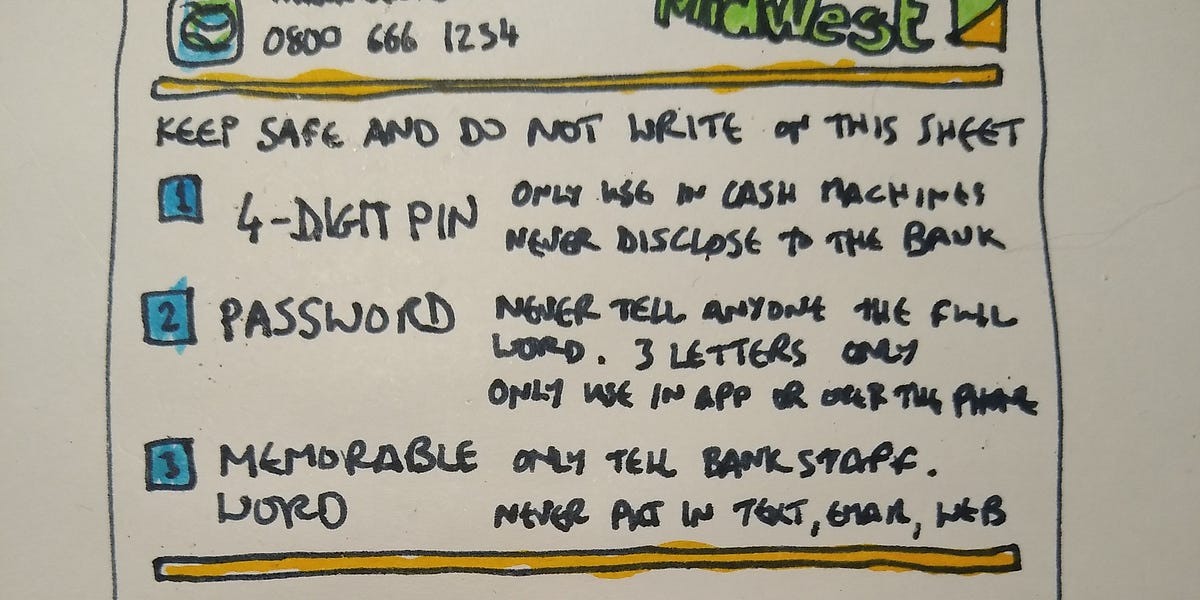 0800 666 1234
MidWest
KEEP SAFE AND DO NOT WRITE ON THIS SHEET
1
4-DIGIT PIN
ONLY USE IN CASH MACHINES
NEVER DISCLOSE TO THE BANK
2
PASSWORD
NEVER TELL ANYONE THE FULL
WORD. 3 LETTERS ONLY
ONLY USE IN APP OR OVER THE PHONE
3
MEMORABLE
WORD
ONLY TELL BANK STAFF.
NEVER PUT IN TEXT, EMAIL, WEB